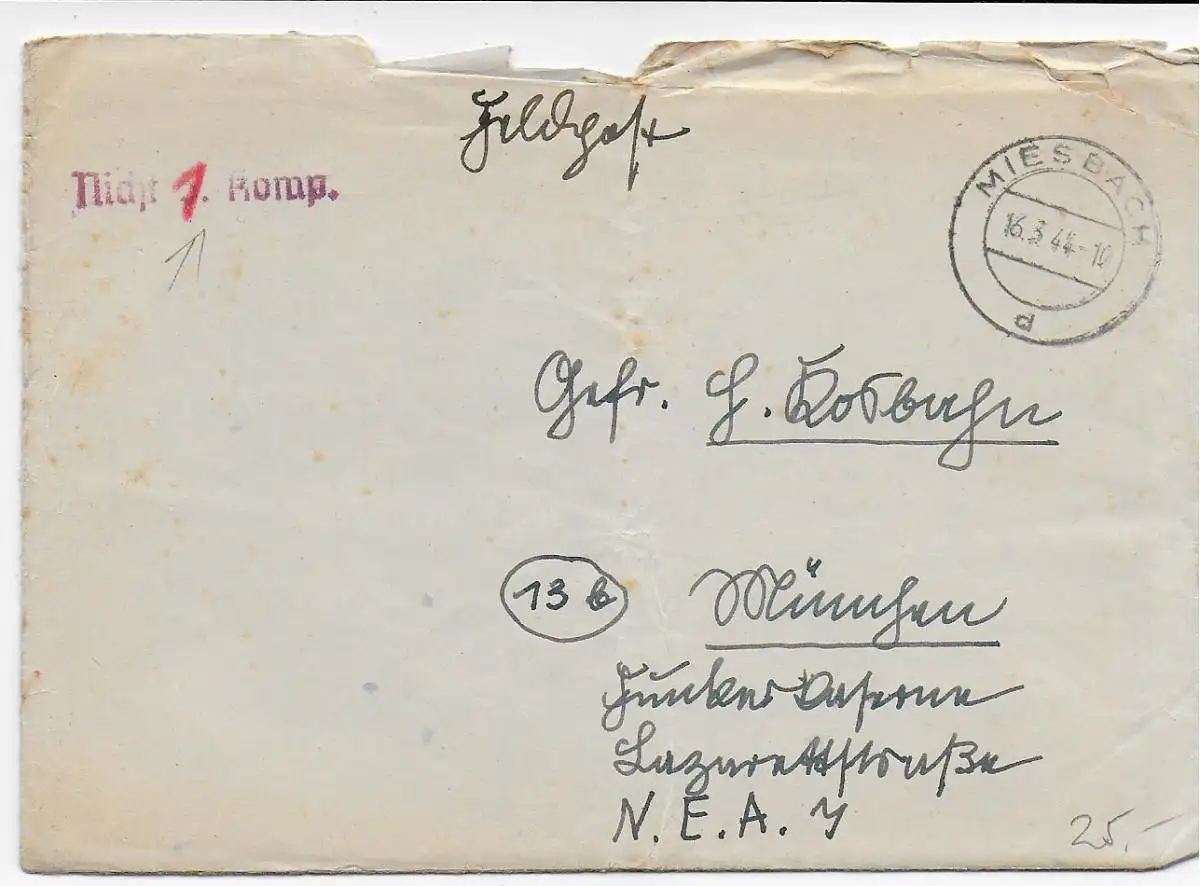 Feldpost
MIESBACH
Nicht 1. Komp.
16.3.44-10
d
Gefr. H. Kosbahn
13 b München
Funker Kaserne
Lazarettstraße
N. E. A. 7
25,-